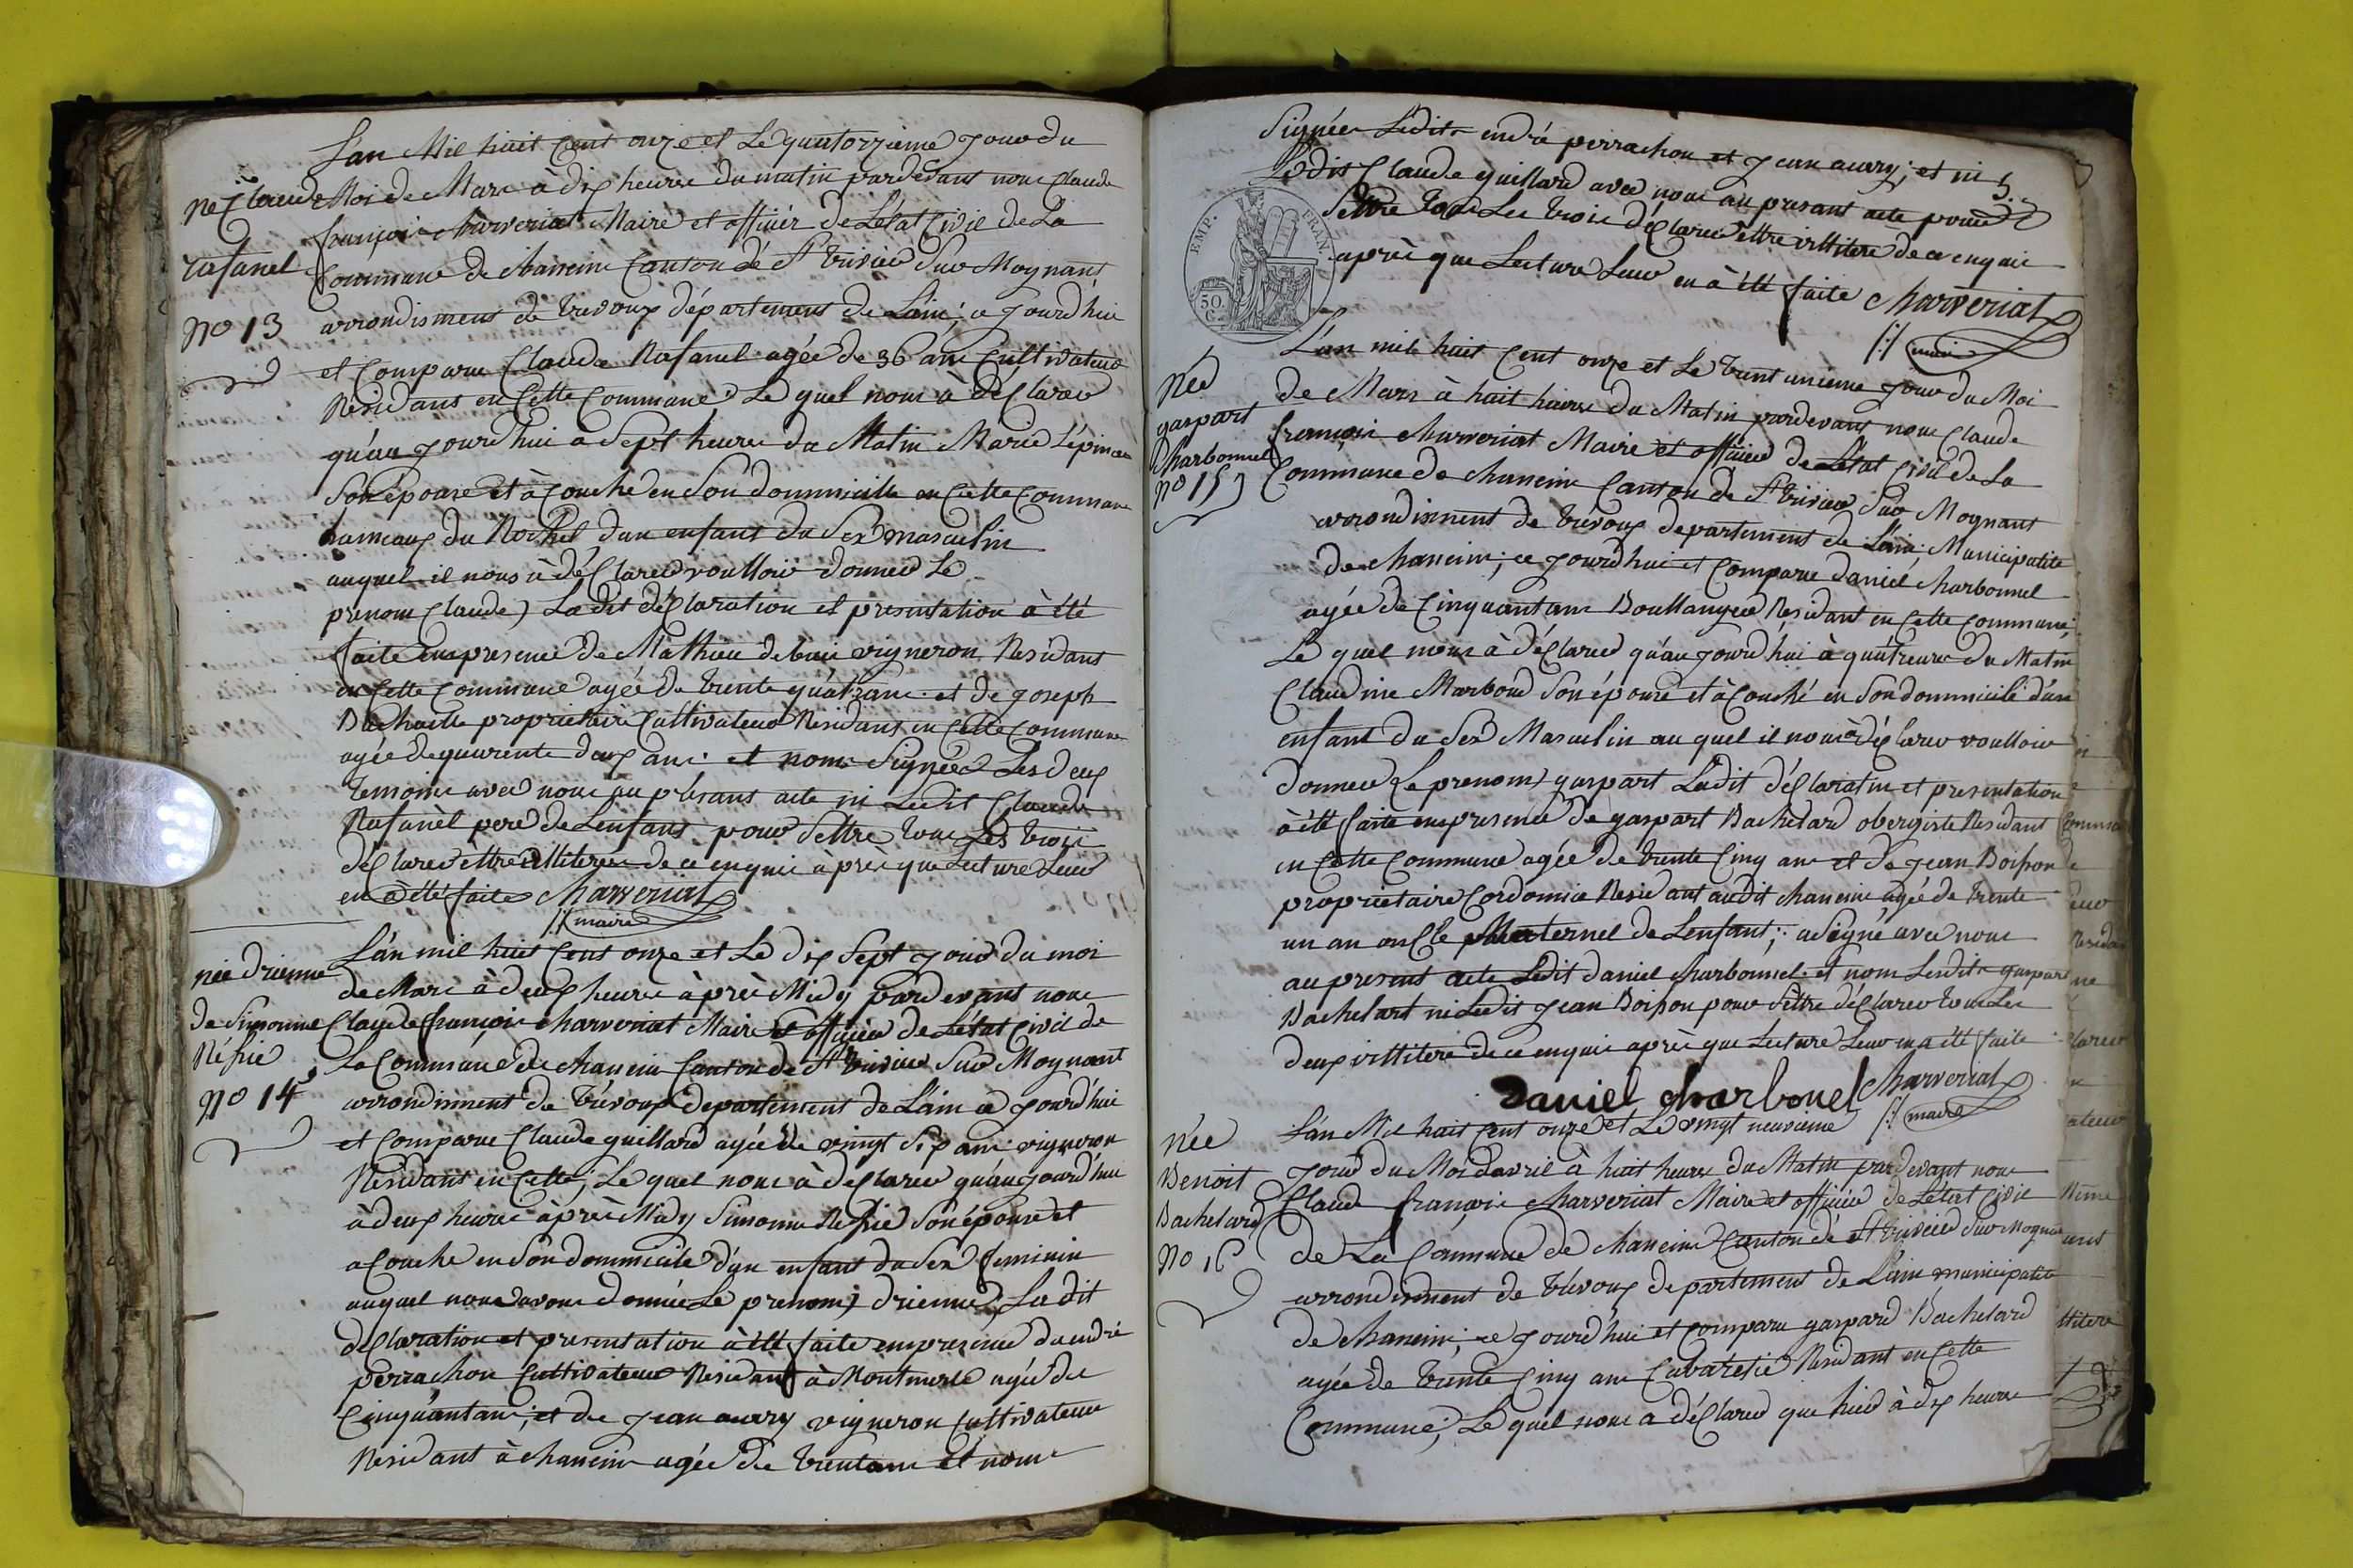 L'an Mil huit Cent onze et Le quatorzieme Jour du
né Claude
Rafanel
No 13
Moi de Mars à dix heures du matin pardevant nous Claude
françois Charveriat Maire et officier de L'état Civil de La
Commune de Chaneins Canton de St trivier Sur Moignans
arrondisment de trevoux département de Lain; ce Jourd'hui
et Comparu Claude Rafanel agée de 36 ans Cultivateur
Residant en Cette Commune Le quel nous à déClarer
qu'au Jourd'hui a Sept heures du Matin Marie L'épine
Son épouse et à Couché en Son dommicille en Cette Commune
hameaux du d'un enfant du Sex masculin
auquel il nous à déClarer voulloir donner Le
prenom Claude) La dit déClaration et presentation à été
faite en presence de Mathieu vigneron Residant
en Cette Commune agée de trente quatr'ans et de Joseph
proprietaire Cultivateur Residant en Cette Commune
agée de quarente deux ans et nons Signées Les deux
temoins avec nous au présant acte ni Ledit Claude
Rafanel pere de Lenfant pour Settre tous Les trois
déClarer ettre illitere de ce enquis après que Lecture Leur
en a été faite Charveriat
maire
née drienne
de Simonne
Réfrie
No 14
L'an mil huit Cent onze et Le dix Sept Jour du moi
de Mars à deux heures après Midy pardevant nous
Claude françois Charveriat Maire et officier de L'état Civil de
La Commune de Chaneins Canton de St trivier Sur Moignant
arrondisment de trévoux departement de Lain ce Jourd'hui
et Comparu Claude guillard agée de vingt Six ans vigneron
Residant en Cette; Le quel nous à déClarer qu'au Jourd'hui
à deux heures après Midy Simonne Réfrie Son épouse et
a Couché en Son dommicile d'un enfant du Sex feminin
auquel nous avons donnée Le prenom) drienne, La dit
déClaration et presentation à été faite en presence d'andré
perrachon Cultivateur Residant à Montmerle agée de
Cinquant ans; et de Jean aurry vigneron Cultivateur
Residant à Chaneins agée de trent ans et nons
5
Signées Ledits andré perrachon et Jean aurry; et ni
Ledit Claude guillard avec nous au presant acte pour
Settre tous Les trois déClarer ettre illitere de ce enquis
après que Lecture Leur en à été faite Charveriat
maire
EMP. FRAN.
50 C.
Née
gaspart
Charbonnel
No 15
L'an mil huit Cent onze et Le trent unieme Jour du Moi
de Mars à huit heures du Matin pardevant nous Claude
françois Charveriat Maire et officier de L'état Civil de La
Commune de Chaneins Canton de St trivier Sur Mognant
arrondisment de trévoux departement de Lain Municipalité
de Chaneins; ce Jourdhui et Comparu daniel Charbonnel
agée de Cinquant ans Boullanger Residant en Cette Commune;
Le quel nous à déClarer qu'au Jourd'hui à quatr'eures du Matin
Claudine Marboud Son épouse et à Couché en Son dommicile d'un
enfant du Sex Masculin au quel il nous à déClarer voulloir
donner (Le prenom) gaspart Ladit déClaration et presentation
à été faite en presence de gaspart Bachelard obergiste Residant
en Cette Commune agée de trente Cinq ans et de Jean Boisson
proprietaire Cordonnie Residant audit Chaneins agée de trente
un an onCle Maternel de Lenfant; a Signé avec nous
au present acte Ledit daniel Charbonnel et nons Lesdits gaspart
Bachelart ni Ledit Jean Boisson pour Settre déClarer tous Les
deux illitere de ce enquis après que Lecture Leur en a été faite
daniel charbonel Charveriat
maire
née
Benoit
Bachelard
No 16
L'an Mil huit Cent onze et Le vingt neuvieme
Jour du Moi davril à huit heures du Matin pardevant nous
Claude françois Charveriat Maire et officier de L'état Civil
de La Commune de Chaneins Canton de St trivier Sur Mognant
arrondisment de trévoux departement de Lain municipalité
de Chaneins; ce Jourd'hui et Comparu gaspard Bachelard
agée de trente Cinq ans Cabaretié Residant en Cette
Commune; Le quel nous a déClarer que hier à dix heures